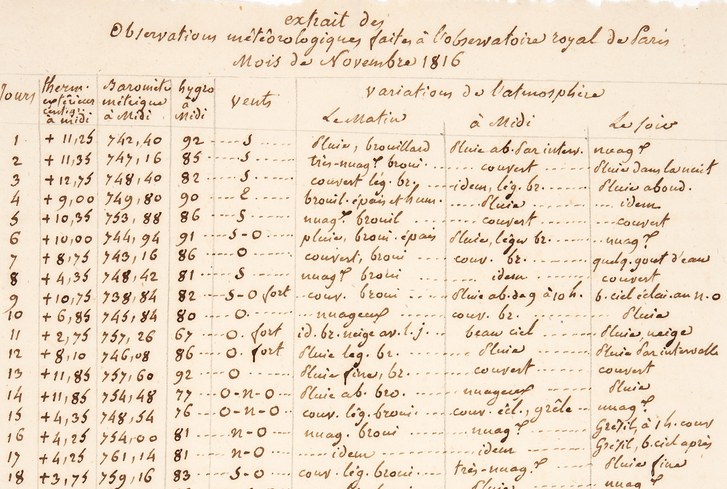 extrait des
Observations météorologiques faites à l'observatoire royal de Paris
Mois de Novembre 1816
Jours therm. extérieur centig. à midi Barometre métrique à Midi hygro à Midi vents variations de l'atmosphère
Le Matin à Midi Le soir
1 +11,25 742,40 92 S Pluie, brouillard Pluie ab. par interv. nuag.x
2 +11,35 747,16 85 S très-nuag.x broui. couvert Pluie dans la nuit
3 +12,75 748,40 82 S couvert lég. br. idem, lég. br. Pluie abond.
4 +9,00 749,80 90 E brouil. épais et hum. Pluie idem
5 +10,35 753,88 86 S nuag.x brouil couvert couvert
6 +10,00 744,94 91 S-O pluie, broui. épais Pluie, léger br. nuag.x
7 +8,75 743,16 86 O couvert, broui couv. br. quelq. gout. d'eau
8 +4,35 748,42 81 S nuag.x broui idem couvert
9 +10,75 738,84 82 S-O fort couv. broui Pluie ab. de 9 à 10 h. b. ciel éclai. au N O
10 +6,85 745,84 80 O nuageux couv. br. Pluie
11 +2,75 757,26 67 O. fort id. br. neige av. l. j. beau ciel Pluie, neige
12 +8,10 746,08 86 O. fort Pluie leg. br. Pluie Pluie par intervalle
13 +11,85 757,60 92 O Pluie fine, br. couvert couvert
14 +11,85 754,48 77 O-n-O Pluie ab. bro. nuageux Pluie
15 +4,35 748,54 76 O-n-O couv. lég. broui couv. écl., grêle nuag.x
16 +4,25 754,00 81 n-O nuag. broui nuag.x Grésil à 1 h. couv
17 +4,25 761,14 81 n-O idem idem Grésil, b. ciel après
18 +3,75 759,16 83 S-O couv. lég. broui très-nuag.x Pluie fine
Pluie nuag.x